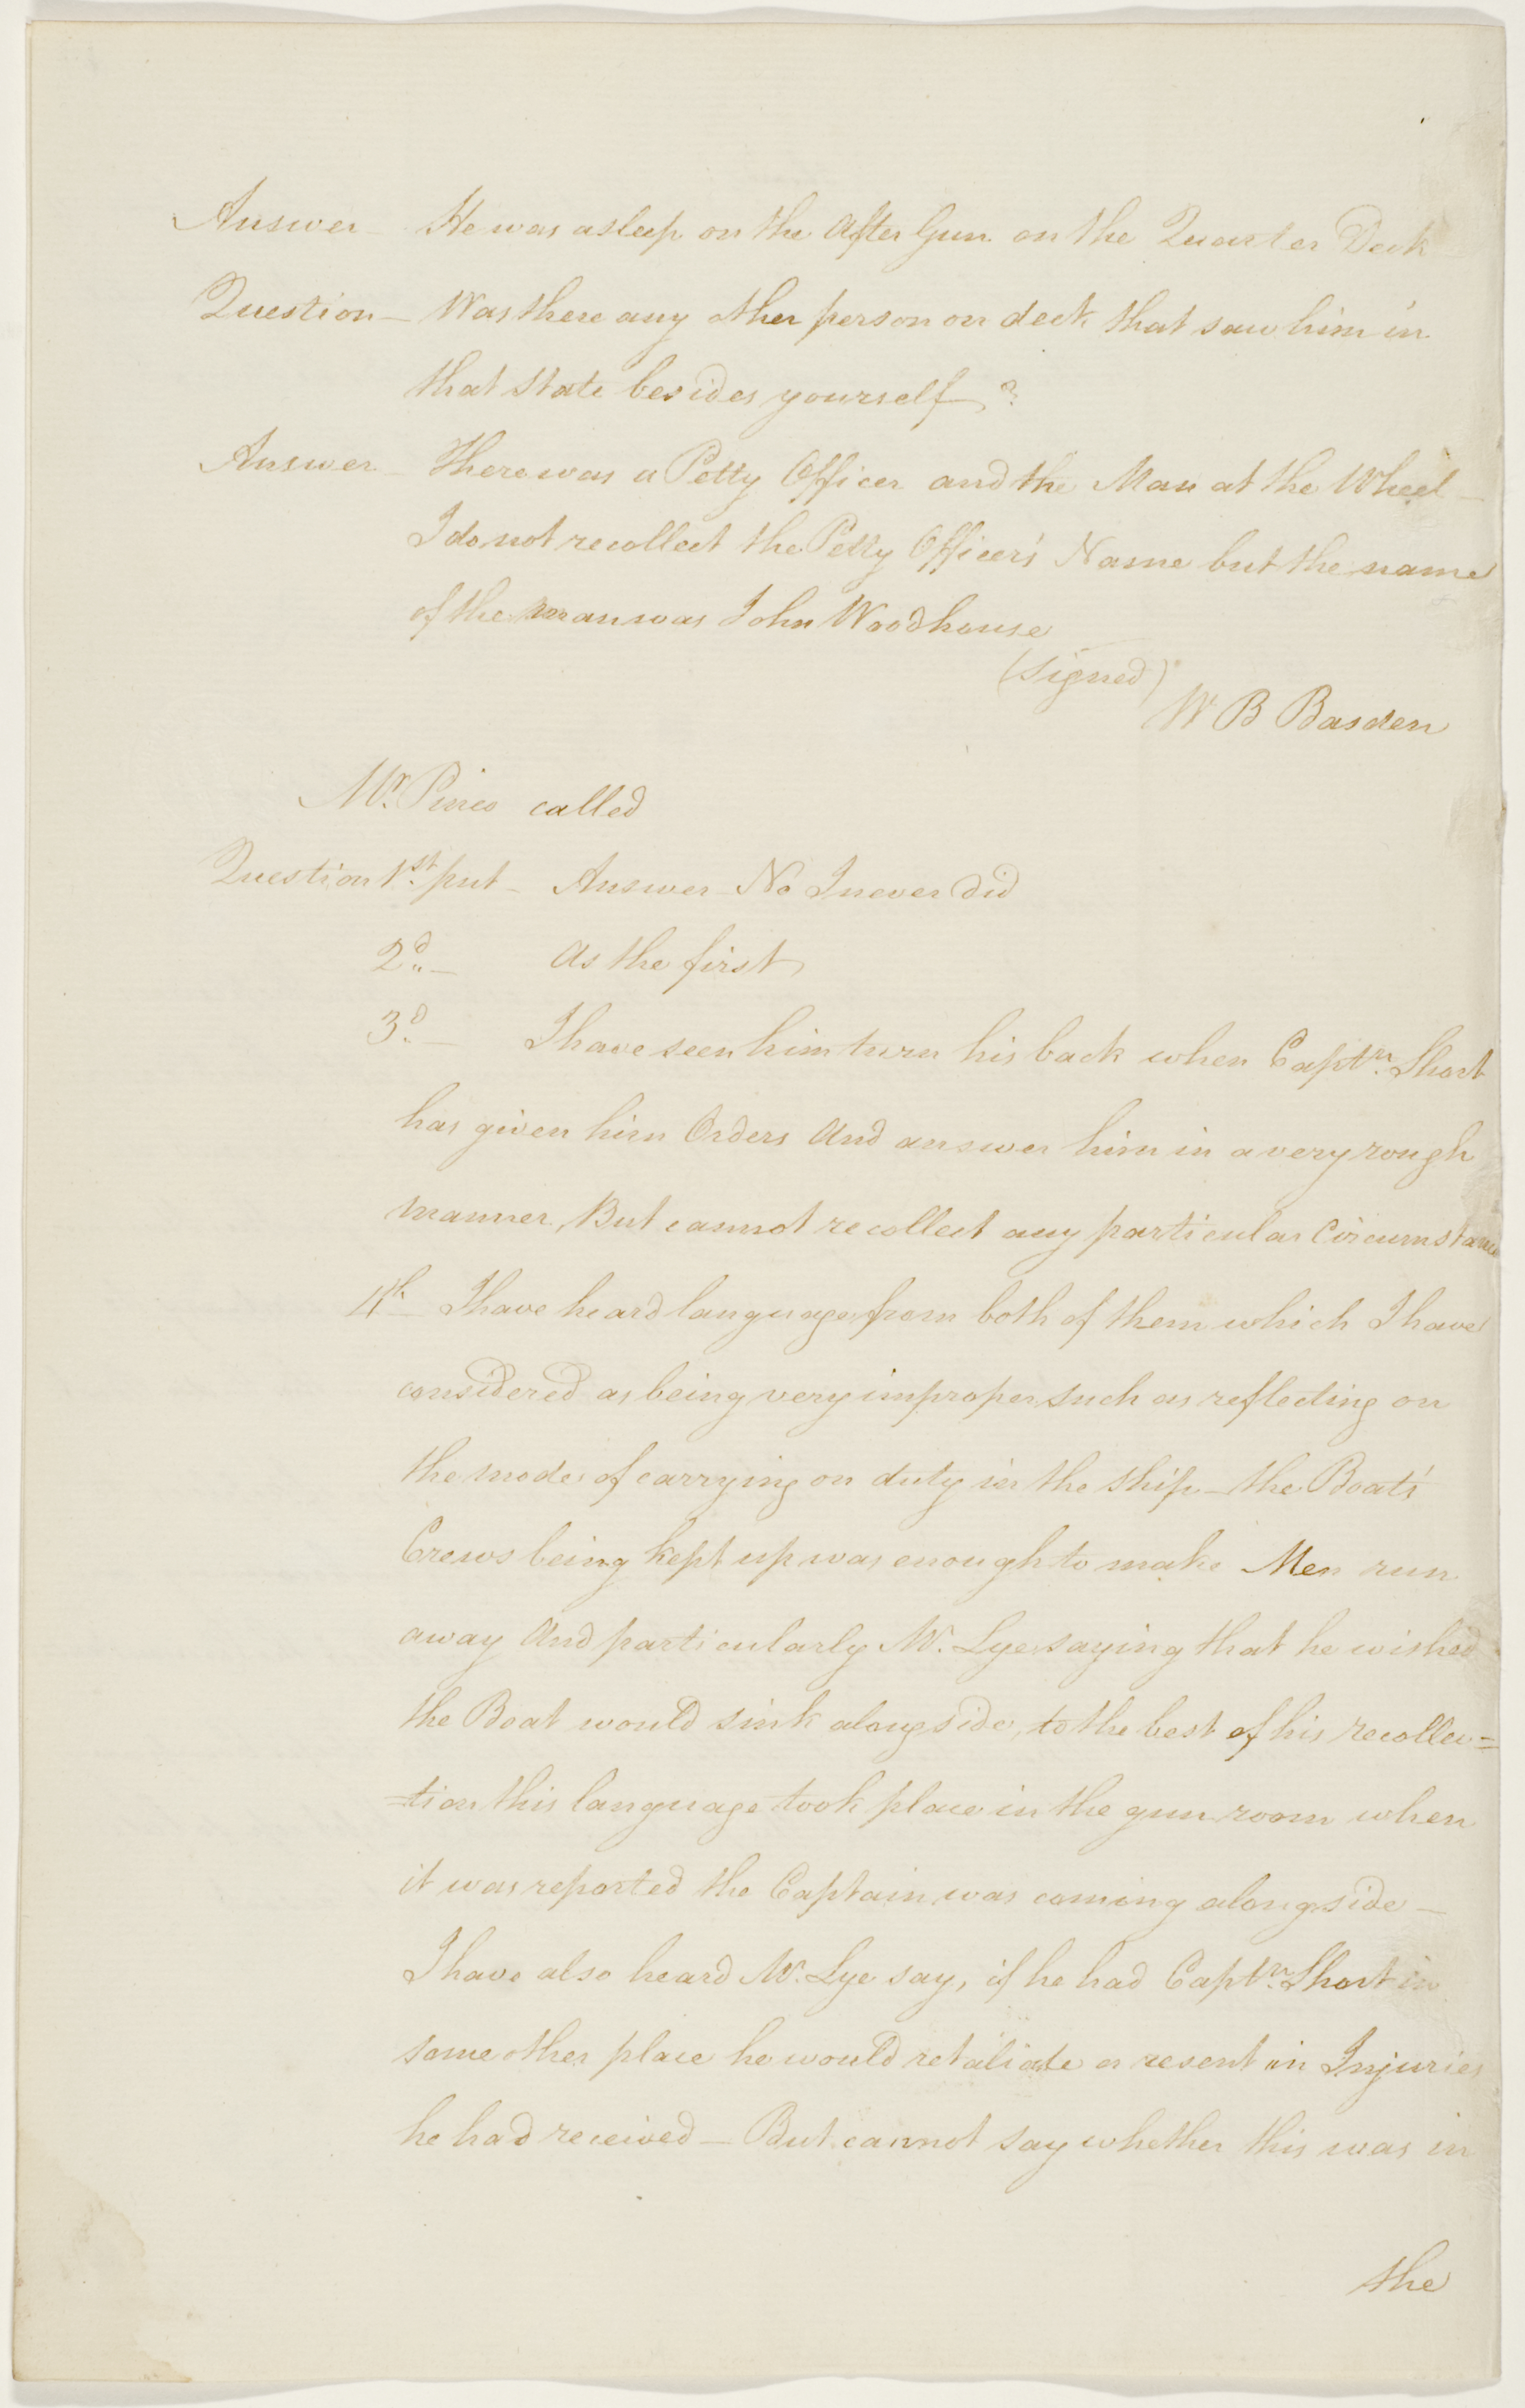 Answer — He was asleep on the After Gun on the Quarter Deck
Question — Was there any other person on deck that saw him in
that state besides yourself ?
Answer — There was a Petty Officer and the Man at the Wheel —
I do not recollect the Petty Officer's Name but the name
of the man was John Woodhouse
(signed)
W B Basden
Mr. Pines called
Question 1st. put — Answer No I never did
2d. — As the first
3d. — I have seen him turn his back when Captn. Short
has given him Orders And answer him in a very rough
manner, But cannot recollect any particular Circumstance
4th — I have heard language from both of them which I have
considered as being very improper such as reflecting on
the modes of carrying on duty in the ship — the Boat's
Crews being kept up was enough to make Men run
away And particularly Mr. Lye saying that he wished
the Boat would sink alongside, to the best of his recollec=
=tion this language took place in the gun room when
it was reported the Captain was coming alongside —
I have also heard Mr. Lye say, if he had Captn. Short in
some other place he would retaliate or resent in Injuries
he had received — But cannot say whether this was in
the